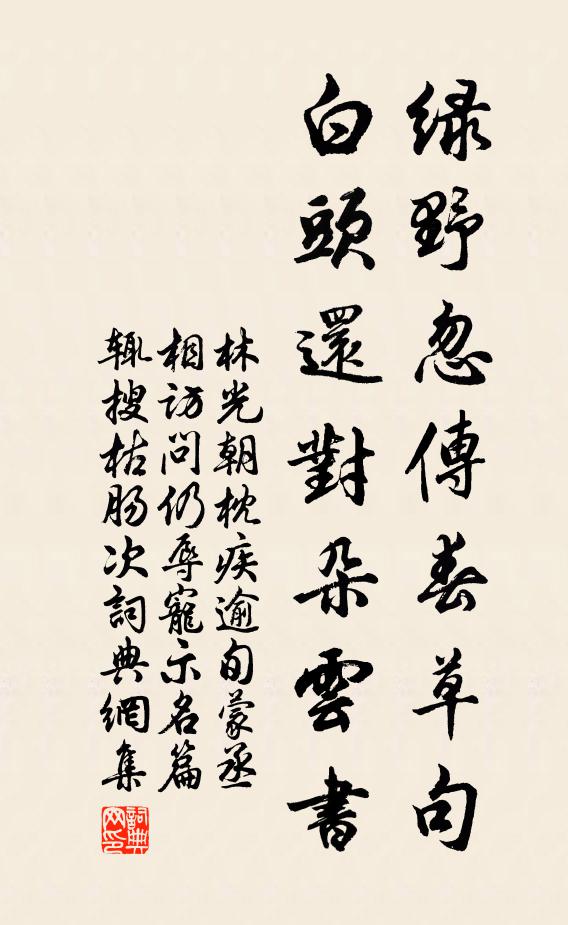 绿野忽傳春草句
白頭還對朵雲書
林光朝枕疾逾旬蒙丞
相訪問仍辱寵示名篇
輒搜枯肠次詞典網集
詞典网印